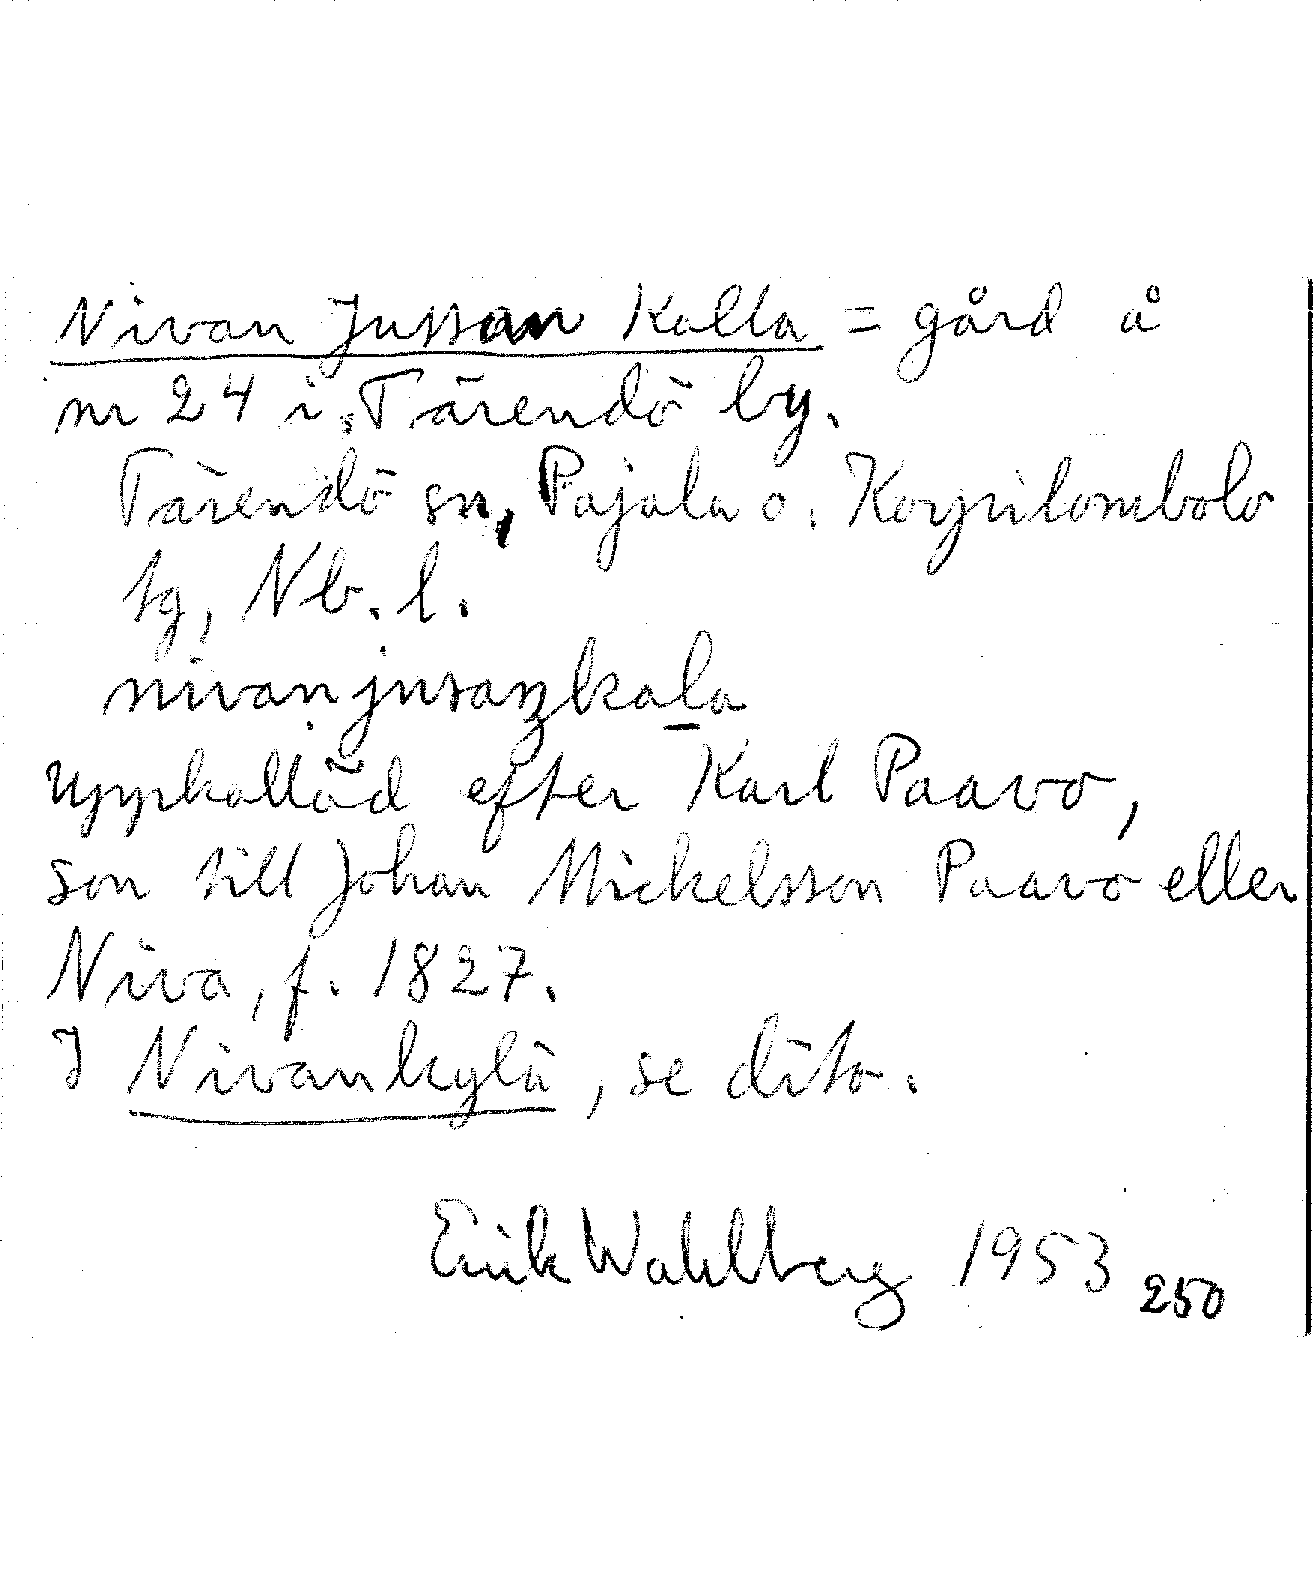 Nivan Jussan Kalla = gård å
nr 24 i Tärendö by.
Tärendö sn, Pajala o. Korpilombolo
tg, Nb. l.
nivanjusaŋkala
Uppkallad efter Karl Paavo,
son till Johan Mickelsson Paavo eller
Niva, f. 1827.
I Nivankylä, se dito.
Erik Wahlberg 1953 250